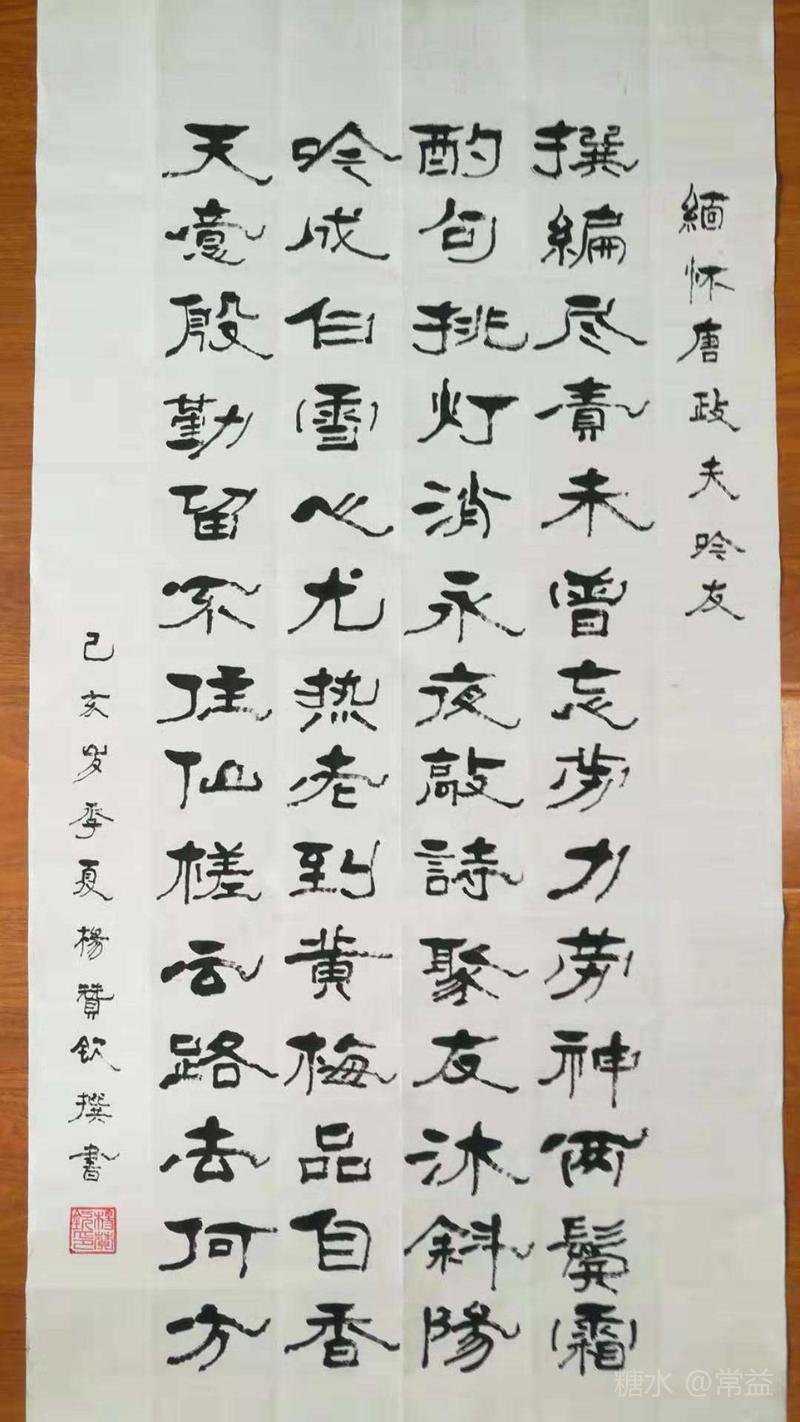 緬怀唐政夫吟友
撰編尽責未曾忘劳力劳神兩鬓霜
酌句挑灯消永夜敲詩聚友沐斜陽
吟成白雪心尤热老到黄梅品自香
天意殷勤留不住仙槎云路去何方
己亥岁季夏楊贊钦撰書
糖水 @常益